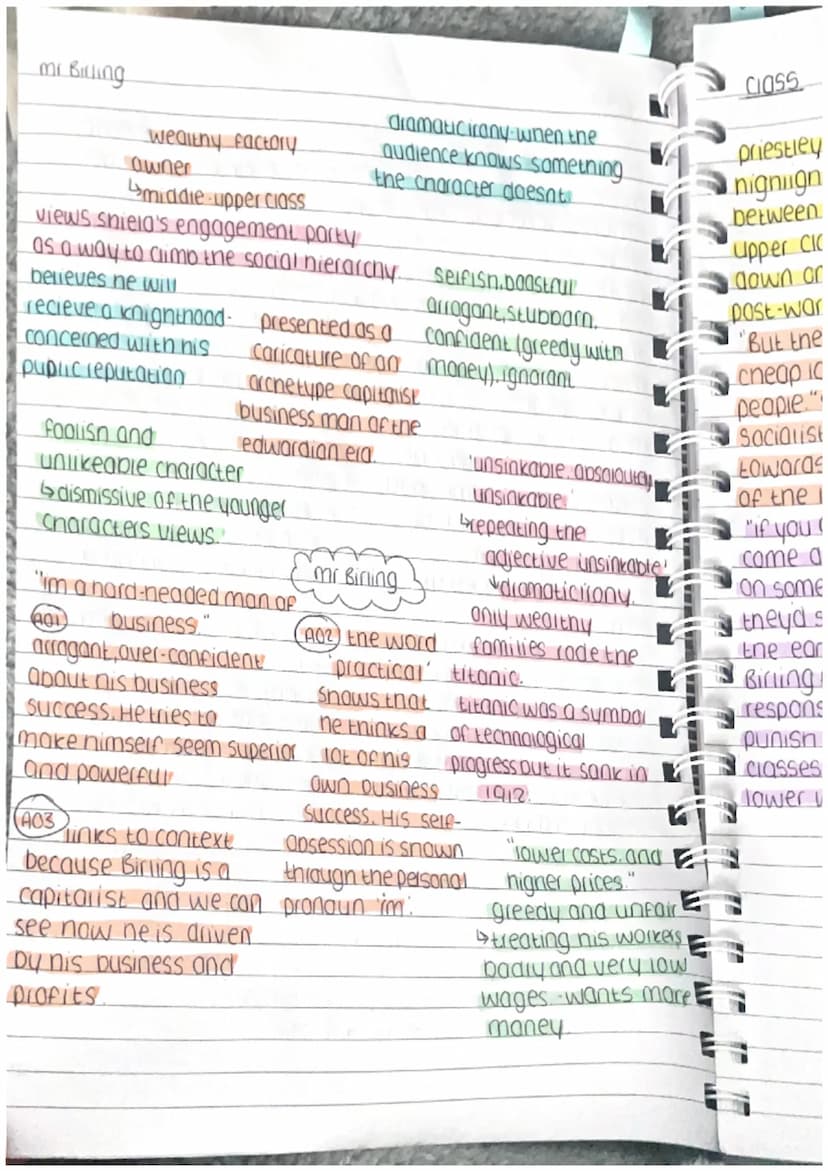 mr Birling
wealthy factory
owner
↳middle-upper class
dramatic irony-when the
audience knows something
the character doesnt
views shiela's engagement party
as a way to climb the social hierarchy
believes he will
recieve a knighthood-
concerned with his
public reputation
presented as a
caricature of an
archetype capitalist
business man of the
edwardian era.
selfish, boastful
arrogant, stubborn,
confident (greedy with
money), ignorant
foolish and
unlikeable character
↳dismissive of the younger
characters views.
'unsinkable, absoloutly
unsinkable'
↳repeating the
adjective 'unsinkable'
↓dramatic irony.
only wealthy
families rode the
titanic.
titanic was a symbol
of technological
progress but it sank in
1912.
mr Birling
"im a hard-headed man of
business."
AO1
arrogant, over-confident
about his business
success. He tries to
make himself seem superior
and powerful
AO2 the word
'practical'
shows that
he thinks a
lot of his
own business
success. His self-
obsession is shown
through the personal
pronoun 'im'.
AO3
links to context
because Birling is a
capitalist and we can
see how he is driven
by his business and
profits.
"lower costs and
higher prices."
greedy and unfair
↳treating his workers
badly and very low
wages.-wants more
money
class
priestley
highligh
between
upper cla
down on
post-war
"But the
cheap la
people."
socialist
towards
of the
"if you
come a
on some
theyd s
the ear
Birling
respons
punish
classes
lower